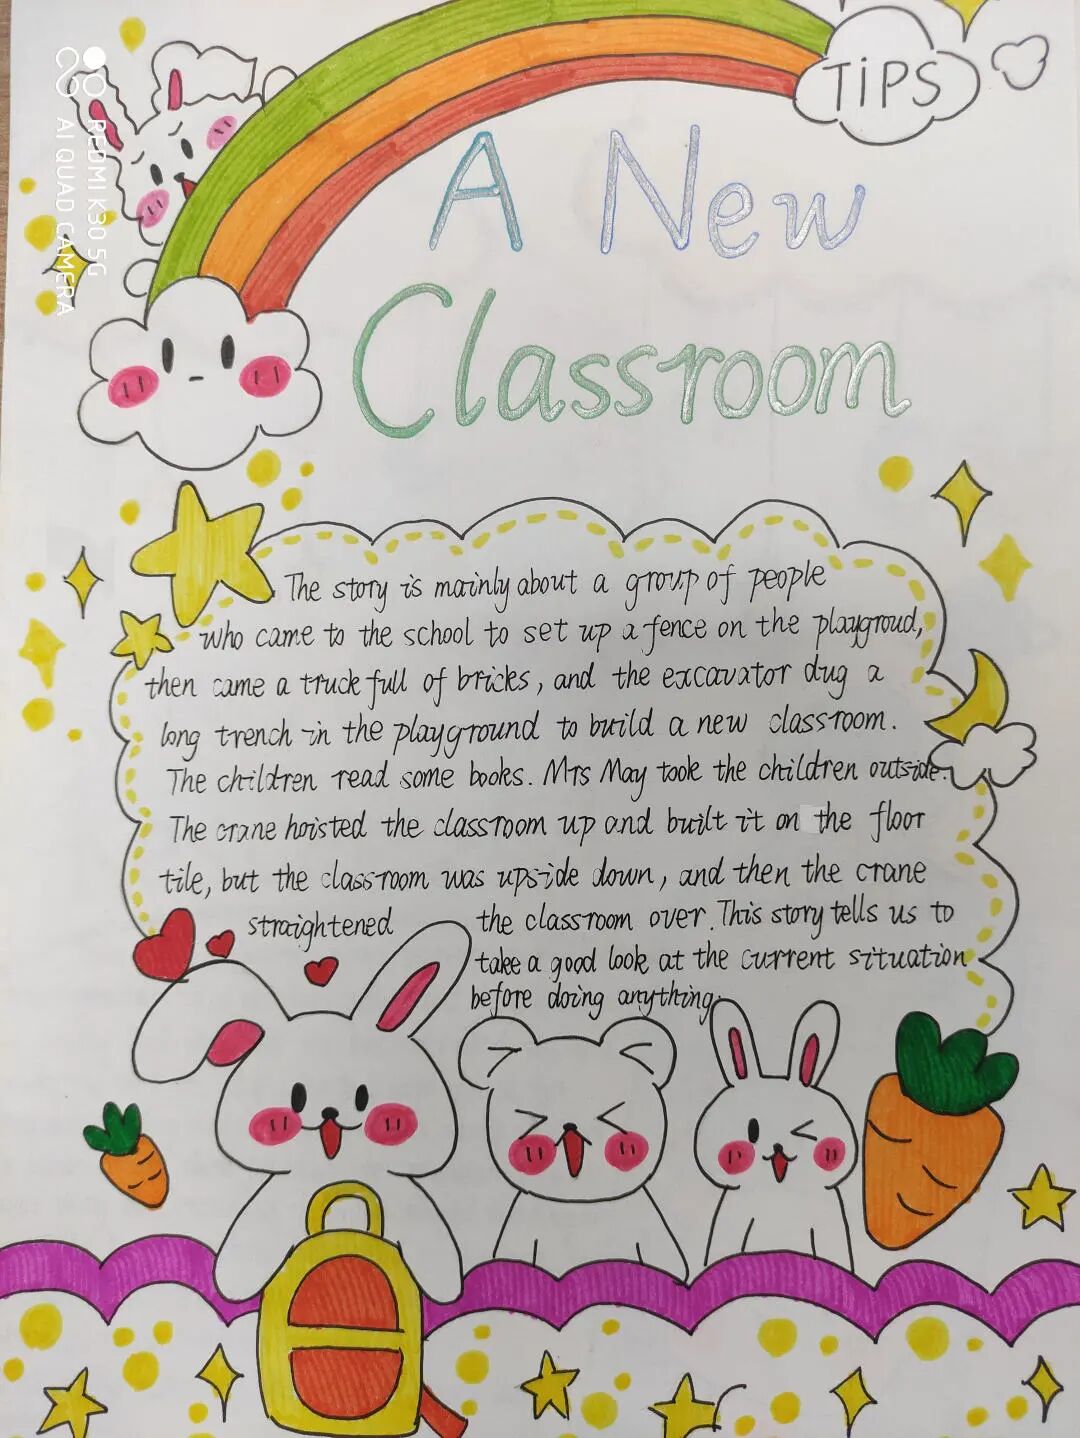 TiPS
A New
Classroom
The story is mainly about a group of people
who came to the school to set up a fence on the playgroud,
then came a truck full of bricks, and the excavator dug a
long trench in the playground to build a new classroom.
The children read some books. Mrs May took the children outside.
The crane hoisted the classroom up and built it on the floor
tile, but the classroom was upside down, and then the crane
straightened the classroom over. This story tells us to
take a good look at the current situation
before doing anything.
REDMI K30 5G
AI QUAD CAMERA